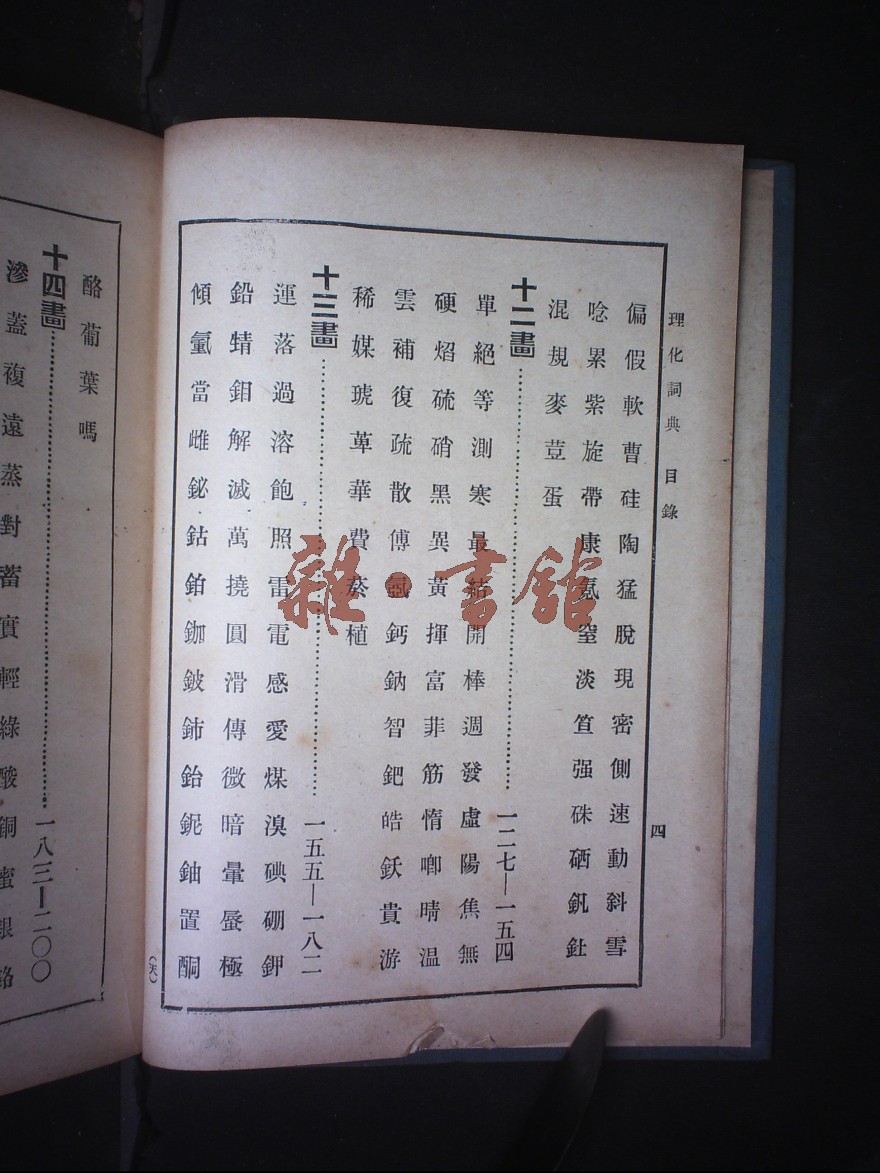 理化詞典 目錄
四
偏假軟曹硅陶猛脫現密側速動斜雪
唸累紫旋帶康氪窒淡笪强硃硒釩釷
混規麥荳蛋
十二畫……一二七—一五四
單絕等測寒最結開棒週發虛陽焦無
硬焰硫硝黑異黃揮富菲筋惰啣晴温
雲補復疏散傅氬鈣鈉智鈀皓鈇貴游
稀媒琥萆華費菸植
十三畫……一五五—一八二
運落過溶飽照雷電感愛煤溴碘硼鉀
鉛蜻鉬解滅萬撓圓滑傳微暗暈蜃極
傾氫當雌鉍鈷鉑鉫鈹鈰鉛鈮鈾置酮
(天)
酪葡葉嗎
十四畫……一八三—二〇〇
滲蓋複遠蒸對蓄實輕綠酸銅蜜銀鉻
雜·書館